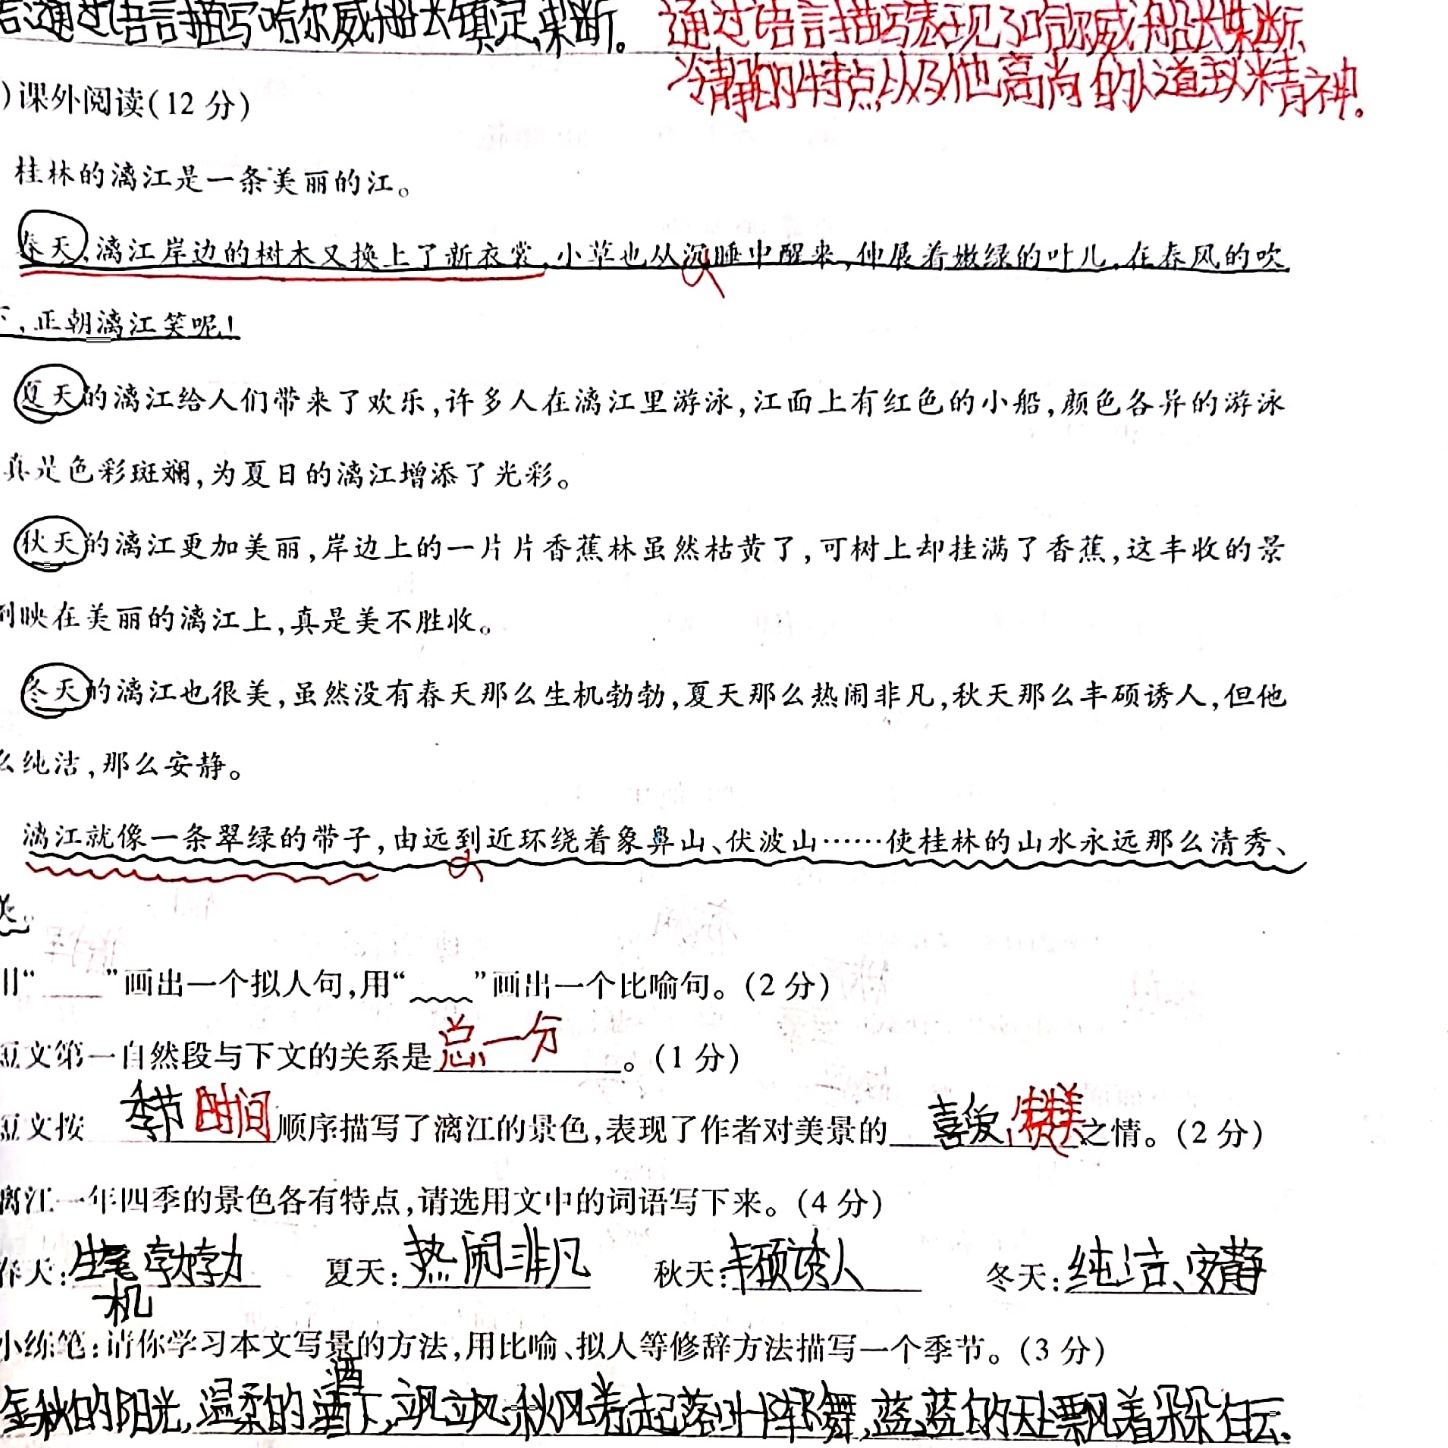 通过语言描写哈尔威船长镇定、果断。
通过语言描写表现了哈尔威船长果断、
冷静的特点以及他高尚的人道主义精神.
)课外阅读(12 分)
桂林的漓江是一条美丽的江。
春天,漓江岸边的树木又换上了新衣裳,小草也从沉睡中醒来,伸展着嫩绿的叶儿,在春风的吹
下,正朝漓江笑呢!
夏天的漓江给人们带来了欢乐,许多人在漓江里游泳,江面上有红色的小船,颜色各异的游泳
真是色彩斑斓,为夏日的漓江增添了光彩。
秋天的漓江更加美丽,岸边上的一片片香蕉林虽然枯黄了,可树上却挂满了香蕉,这丰收的景
倒映在美丽的漓江上,真是美不胜收。
冬天的漓江也很美,虽然没有春天那么生机勃勃,夏天那么热闹非凡,秋天那么丰硕诱人,但他
么纯洁,那么安静。
漓江就像一条翠绿的带子,由远到近环绕着象鼻山、伏波山……使桂林的山水永远那么清秀、
美。
用“____”画出一个拟人句,用“﹏﹏”画出一个比喻句。(2 分)
短文第一自然段与下文的关系是总一分。(1 分)
短文按 季节 时间 顺序描写了漓江的景色,表现了作者对美景的 喜爱、赞美 之情。(2 分)
漓江一年四季的景色各有特点,请选用文中的词语写下来。(4 分)
春天:生机勃勃 夏天:热闹非凡 秋天:丰硕诱人 冬天:纯洁、安静
小练笔:请你学习本文写景的方法,用比喻、拟人等修辞方法描写一个季节。(3 分)
金秋的阳光,温柔的洒下,飒飒秋风卷起落叶阵舞,蓝蓝的天上飘着朵朵白云.